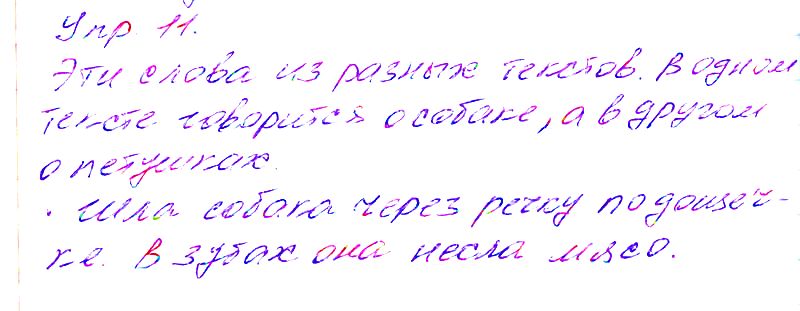 Упр 11.
Эти слова из разных текстов. В одном
тексте говорится о собаке, а в другом
о петушках.
. Шла собака через речку по дощеч-
ке. В зубах она несла мясо.